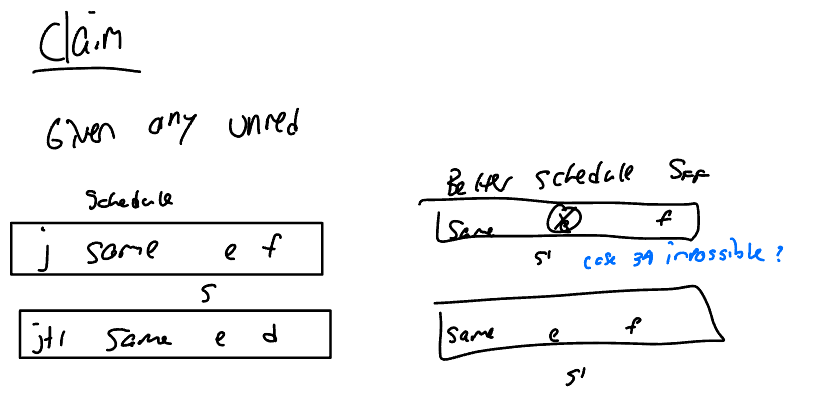 Claim
Given any unred
Schedule
j same e f
S
j+1 same e d
Better schedule SFF
Same f
S'
case 3a impossible?
same e f
S'